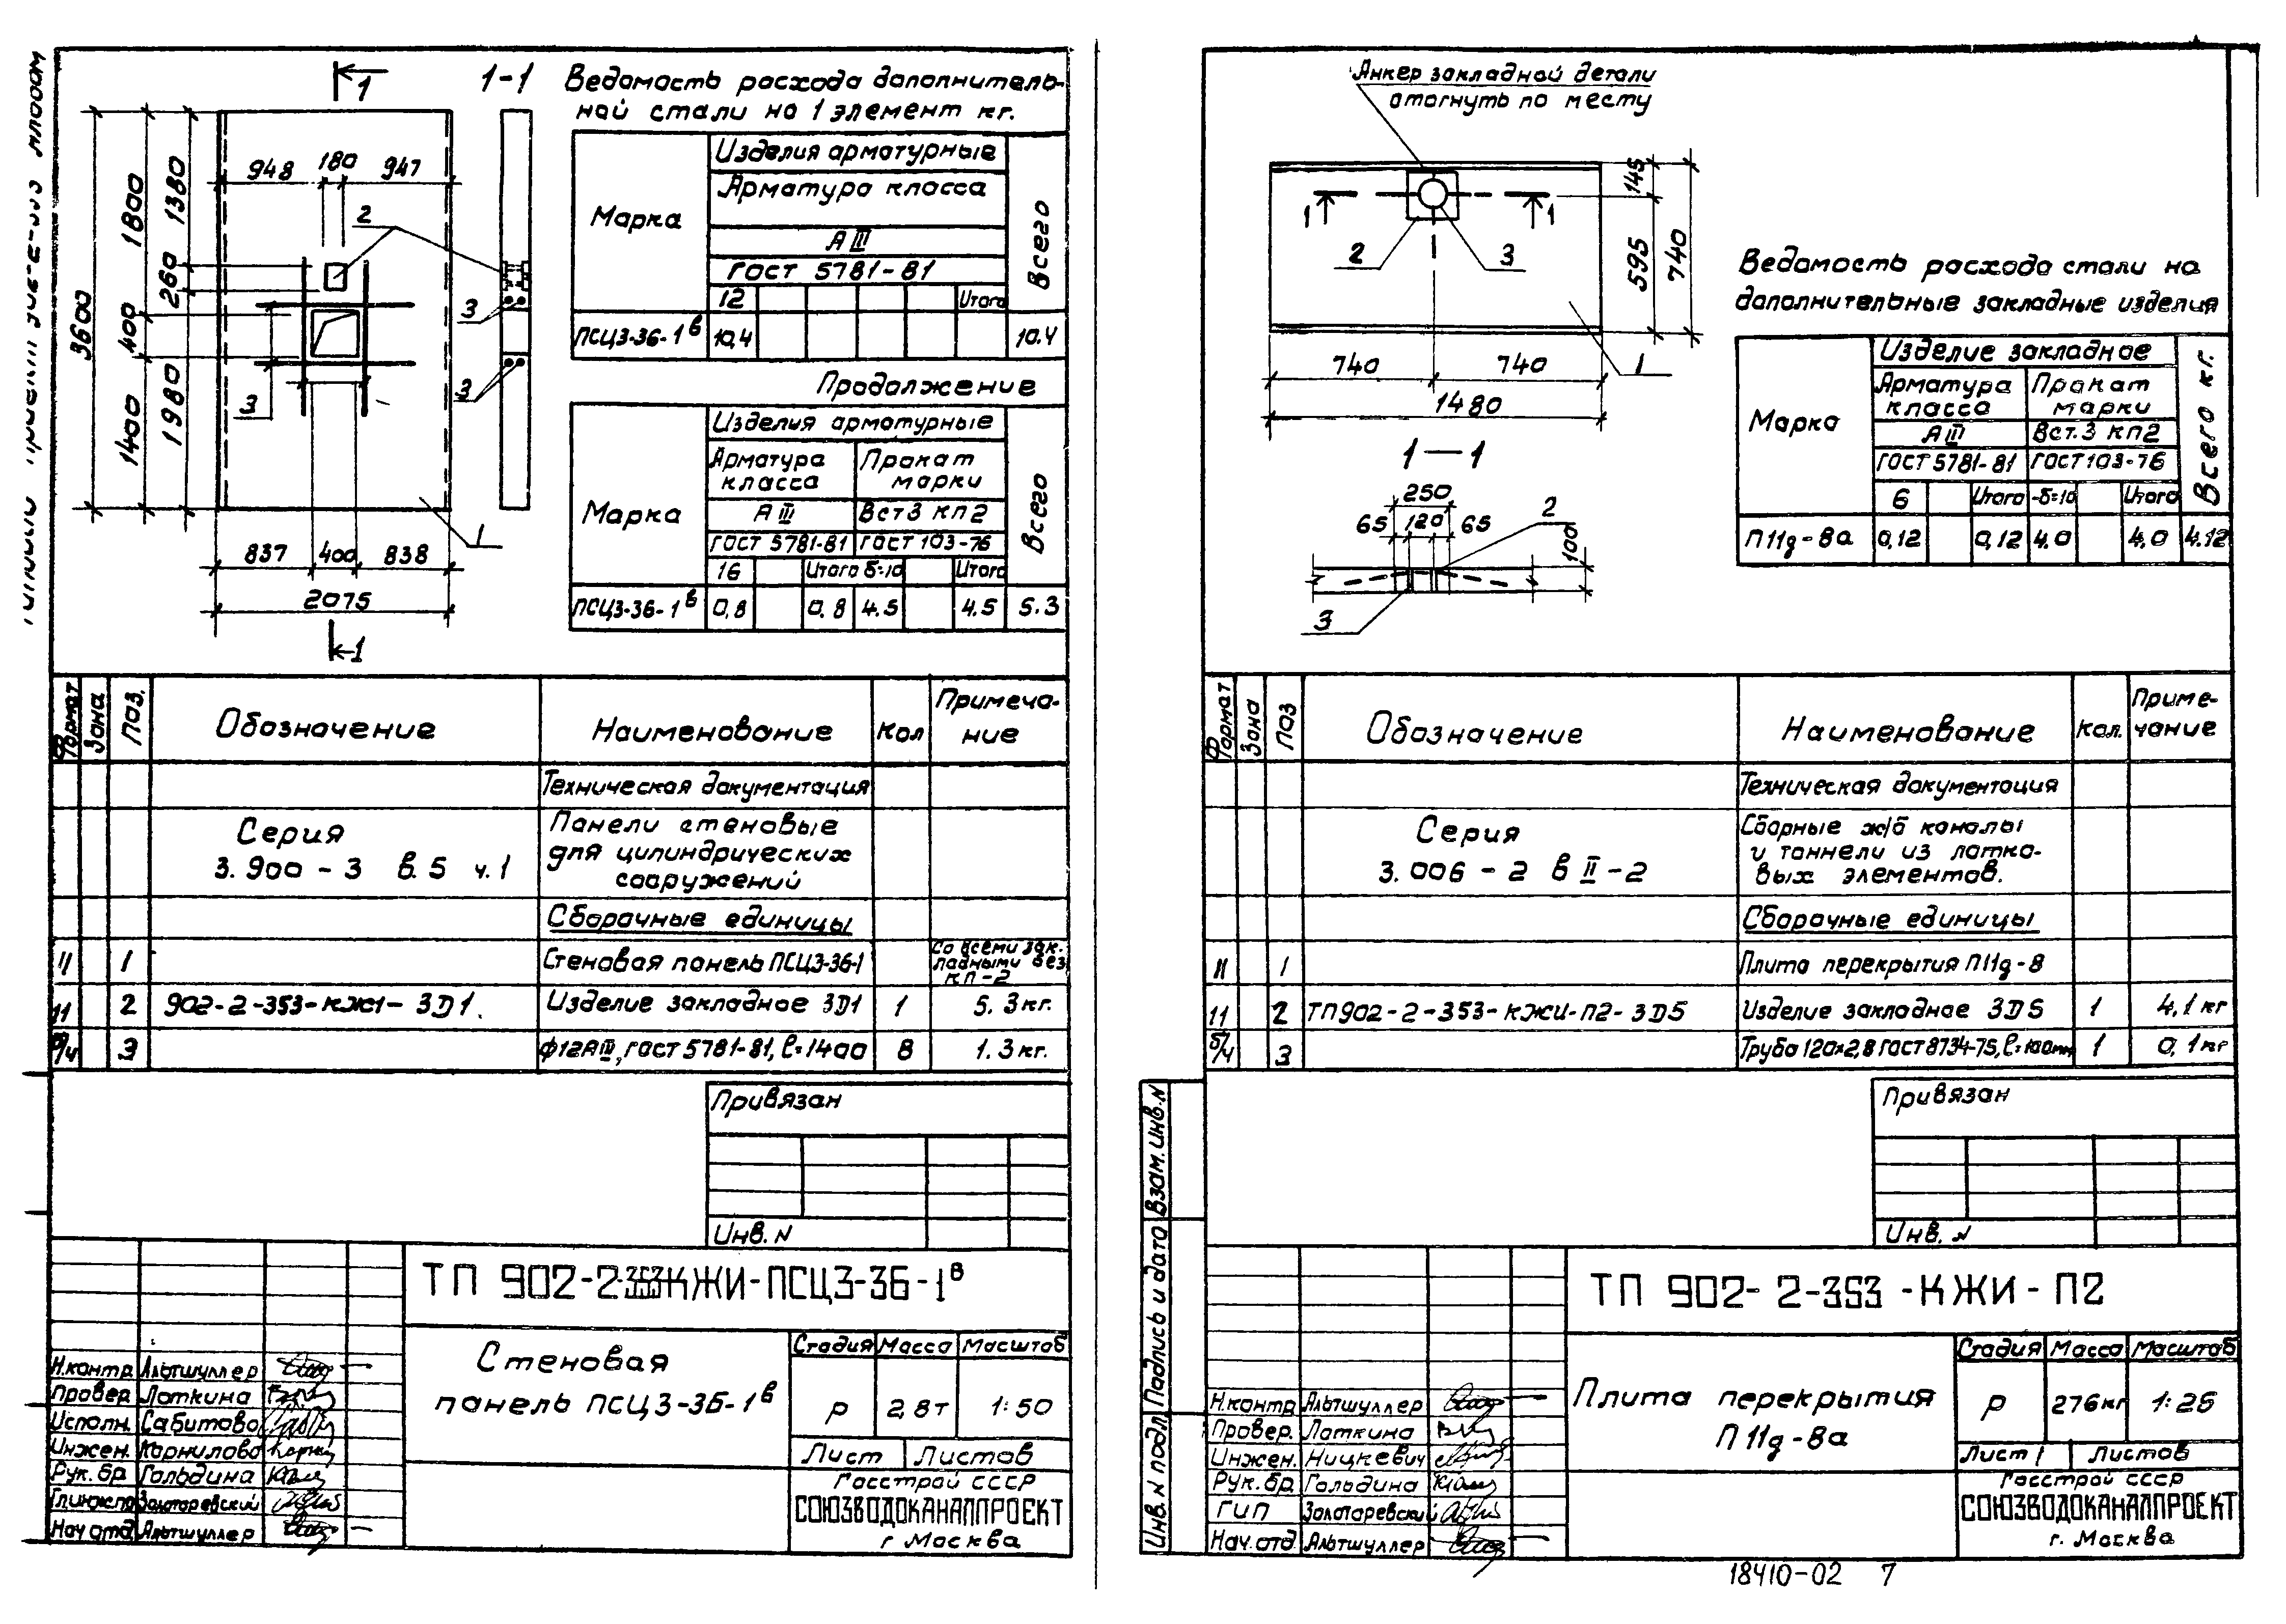 1
1-1
Ведомость расхода дополнитель-
ной стали на 1 элемент кг.
948 180 947
3600
1800
400
1400
1380
260
1980
2
3
3
3
1
837 400 838
2075
1
Марка
Изделия арматурные
Арматура класса
А III
ГОСТ 5781-81
12 Итого
Всего
ПСЦ3-36-1в 10,4 10.4
Продолжение
Марка
Изделия арматурные
Арматура класса
Прокат марки
А III Вст3 кп2
ГОСТ 5781-81 ГОСТ 103-76
16 Итого б=10 Итого
Всего
ПСЦ3-36-1в 0,8 0,8 4.5 4.5 5.3
Формат Зона Поз. Обозначение Наименование Кол Примеча-
ние
Техническая документация
Серия
3.900-3 в.5 ч.1
Панели стеновые
для цилиндрических
сооружений
Сборочные единицы
11 1 Стеновая панель ПСЦ3-36-1
Со всеми зак-
ладными без
КП-2
11 2 902-2-353-КЖИ-ЗД1. Изделие закладное ЗД1 1 5.3кг.
б/ч 3 ф12АIII, ГОСТ 5781-81, ℓ=1400 8 1.3кг.
Привязан
Инв. N
ТП 902-2-353-КЖИ-ПСЦ3-36-1в
Стеновая
панель ПСЦ3-36-1в
Стадия Масса Масштаб
Р 2,8т 1:50
Лист Листов
Госстрой СССР
СОЮЗВОДОКАНАЛПРОЕКТ
г Москва
Н.контр. Альтшуллер
Провер. Латкина
Исполн. Сабитова
Инжен. Корнилова
Рук.бр. Гольдина
Гл.инж.пр. Золотаревский
Нач отд. Альтшуллер
Анкер закладной детали
отогнуть по месту
1 1
2 3
145
595
740
740 740
1
1480
1-1
250
65 120 65
2
100
3
Ведомость расхода стали на
дополнительные закладные изделия
Марка
Изделие закладное
Арматура класса
Прокат марки
А III Вст.3 кп2
ГОСТ 5781-81 ГОСТ 103-76
6 Итого -б=10 Итого
Всего кг.
П11д-8а 0,12 0,12 4.0 4.0 4.12
Формат Зона Поз Обозначение Наименование Кол. Приме-
чание
Техническая документация
Серия
3.006-2 в II-2
Сборные ж/б каналы
и тоннели из лотко-
вых элементов.
Сборочные единицы
11 1 Плита перекрытия П11д-8
11 2 ТП902-2-353-КЖИ-П2-ЗД5 Изделие закладное ЗД5 1 4,1 кг
б/ч 3 Труба 120х2,8 ГОСТ 8734-75, ℓ=100мм 1 0,1кг
Привязан
Инв. N
Взам.инв.N
Подпись и дата
Инв. N подл.
ТП 902-2-353-КЖИ-П2
Плита перекрытия
П11д-8а
Стадия Масса Масштаб
Р 276кг 1:25
Лист 1 Листов
Госстрой СССР
СОЮЗВОДОКАНАЛПРОЕКТ
г. Москва
Н.контр Альтшуллер
Провер. Латкина
Инжен. Ницкевич
Рук.бр. Гольдина
ГИП Золотаревский
Нач.отд. Альтшуллер
18410-02 7